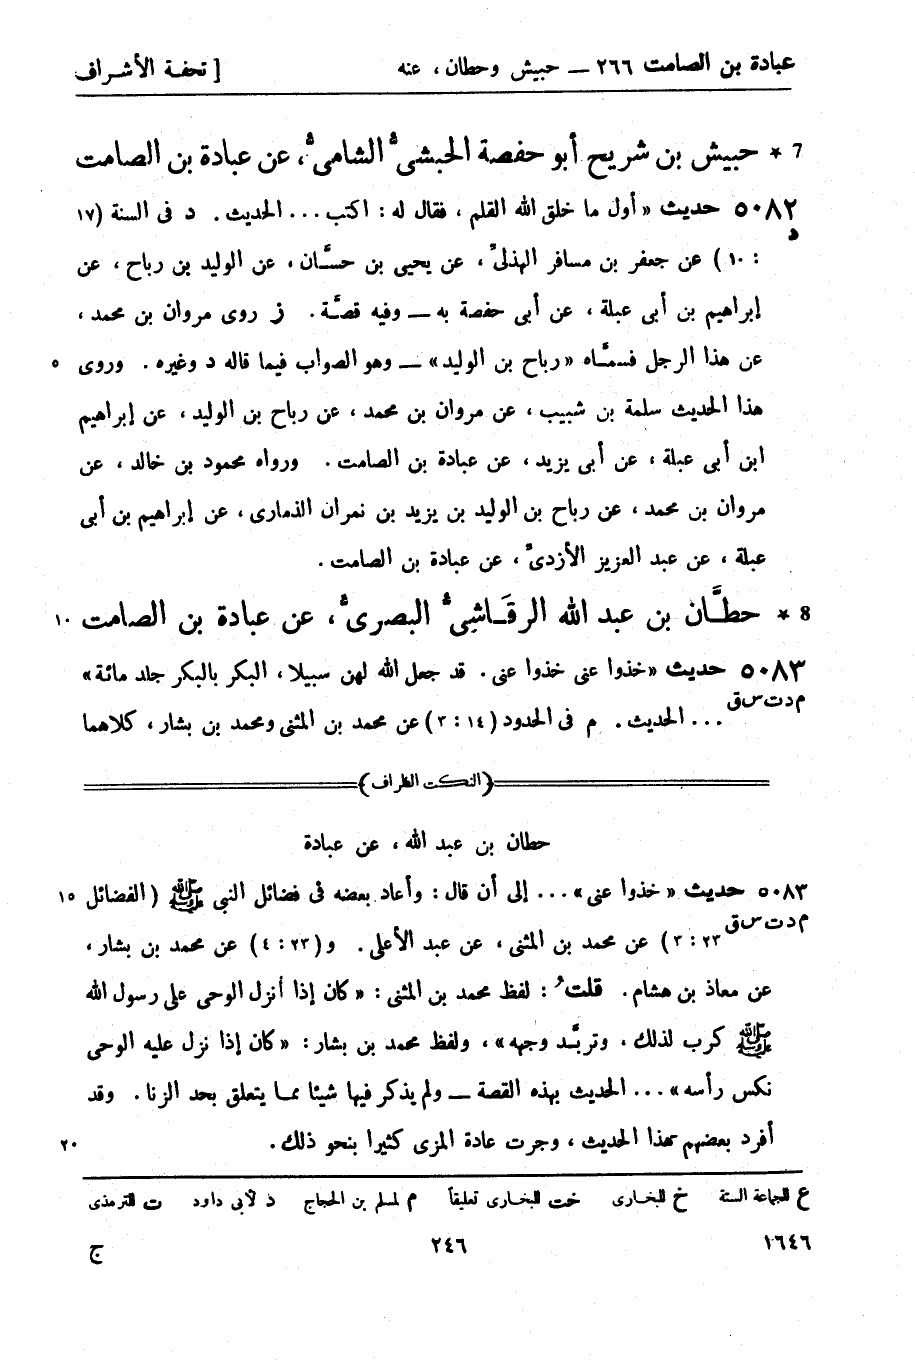 عبادة بن الصامت ٢٦٦ — حبيش وحطان، عنه [ تحفة الأشراف
7 * حبيش بن شريح أبو حفصة الحبشىّ الشامىّ، عن عبادة بن الصامت
٥٠٨٢ حديث «أول ما خلق الله القلم، فقال له: اكتب... الحديث. د فى السنة (١٧
د
: ١٠) عن جعفر بن مسافر الهذلىّ، عن يحيى بن حسَّان، عن الوليد بن رباح، عن
إبراهيم بن أبى عبلة، عن أبى حفصة به — وفيه قصَّة. ز روى مروان بن محمد،
عن هذا الرجل فسمَّاه «رباح بن الوليد» — وهو الصواب فيما قاله د وغيره. وروى ٥
هذا الحديث سلمة بن شبيب، عن مروان بن محمد، عن رباح بن الوليد، عن إبراهيم
ابن أبى عبلة، عن أبى يزيد، عن عبادة بن الصامت. ورواه محمود بن خالد، عن
مروان بن محمد، عن رباح بن الوليد بن يزيد بن نمران الذمارى، عن إبراهيم بن أبى
عبلة، عن عبد العزيز الأزدىّ، عن عبادة بن الصامت.
8 * حطَّان بن عبد الله الرقَاشِىّ البصرىّ، عن عبادة بن الصامت ١٠
٥٠٨٣ حديث «خذوا عنى خذوا عنى. قد جعل الله لهن سبيلا، البكر بالبكر جلد مائة»
م د ت س ق ... الحديث. م فى الحدود (١٤ : ٣) عن محمد بن المثنى ومحمد بن بشار، كلاهما
(النكت الظراف)
حطان بن عبد الله، عن عبادة
٥٠٨٣ حديث «خذوا عنى»... إلى أن قال: وأعاد بعضه فى فضائل النبى ﷺ (الفضائل ١٥
م د ت س ق ٢٣ : ٣) عن محمد بن المثنى، عن عبد الأعلى. و(٢٣ : ٤) عن محمد بن بشار،
عن معاذ بن هشام. قلتُ: لفظ محمد بن المثنى: «كان إذا أنزل الوحى على رسول الله
ﷺ كرب لذلك، وتربَّد وجهه»، ولفظ محمد بن بشار: «كان إذا نزل عليه الوحى
نكس رأسه»... الحديث بهذه القصة — ولم يذكر فيها شيئا مما يتعلق بحد الزنا. وقد
أفرد بعضهم هذا الحديث، وجرت عادة المزى كثيرا بنحو ذلك. ٢٠
ع للجماعة الستة خ للبخارى خت للبخارى تعليقاً م لمسلم بن الحجاج د لأبى داود ت للترمذى
١٦٤٦ ٢٤٦ ج